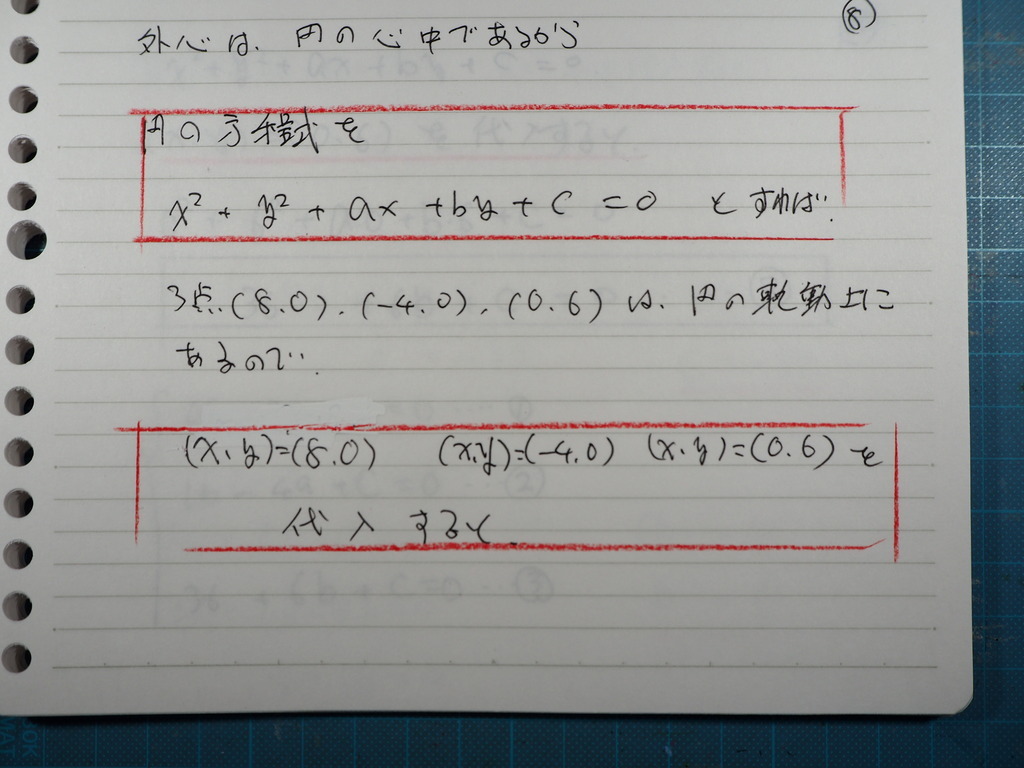 ⑧
外心は、円の心中であるから
円の方程式を
x² + y² + ax + by + c = 0 とすれば、
3点、(8.0)、(-4.0)、(0.6) は、円の軌動上に
あるので、
(x、y)=(8.0) (x、y)=(-4.0) (x、y)=(0.6) を
代入すると、